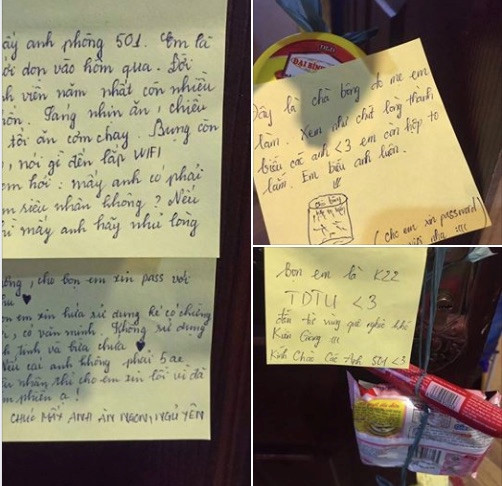 ấy anh phòng 501. Em là
ới dọn vào hôm qua. Đời
h viên năm nhất còn nhiều
ăn. Sáng nhịn ăn, chiều
tối ăn cơm chay. Bụng còn
, nói gì đến lắp WIFI
em hỏi: mấy anh có phải
m siêu nhân không? Nếu
mấy anh hãy nhủ lòng
, cho bọn em xin pass với
n em xin hứa sử dụng kẻ có chừng
, có văn minh. Không sử dụng
h tinh và bừa chứa
ếu các anh không phải 5 ae
nhân thì cho em xin lỗi vì đã
m phiền ạ!
CHÚC MẤY ANH ĂN NGON, NGỦ YÊN
ĐẠI BÌNH
Đây là chà bông do mẹ em
làm. Xem như chút lòng thành
biếu các anh <3 em còn hộp to
lắm. Em biếu anh luôn.
(cho em xin password
nha !!!
Bọn em là K22
TDTU <3
đến từ vùng quê nghèo khó
Kiên Giang
Kính Chào Các Anh 501 <3